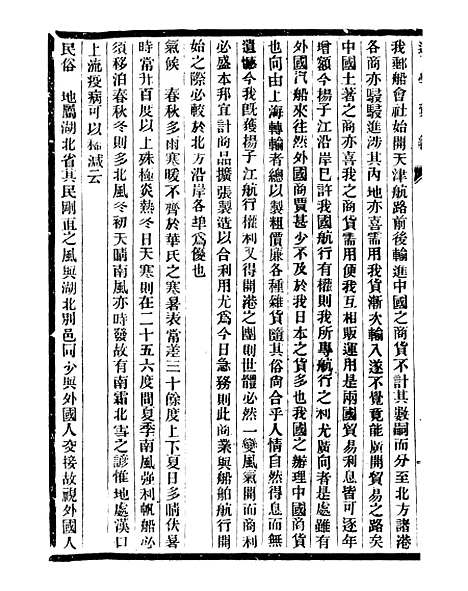 我郵船會社始開天津航路前後輸進中國之商貨不計其數嗣而分至北方諸港
各商亦駸駸進涉其內地亦喜需用我貨漸次輸入遂不覺竟能廣開貿易之路矣
中國土著之商亦喜我之商貨需用便我互相販運用是兩國貿易利息皆可逐年
增額今揚子江沿岸已許我國航行有權則我所專航行之利尤廣向者是處雖有
外國汽船來往然外國商賈甚少不及於我日本之貨多也我國之辦理中國商貨
也向由上海轉輸者總以製粗價廉各種雜貨隨其俗尚合乎人情自然得息而無
遺憾今我旣獲揚子江航行權利又得開港之團則世體必然一變風氣開而商利
必盛本邦宜計商品擴張製造以合利用尤爲今日急務則此商業與船舶航行開
始之際必較於北方沿岸各埠爲優也
氣候　春秋多雨寒暖不齊於華氏之寒暑表常差三十餘度上下夏日多晴伏暑
時常升百度以上殊極炎熱冬日天寒則在二十五六度間夏季南風强利帆船必
須移泊春秋冬則多北風冬初天晴南風亦時發故有南霜北雪之諺惟地處漢口
上流疫病可以極減云
民俗　地屬湖北省其民剛直之風與湖北別邑同少與外國人交接故視外國人